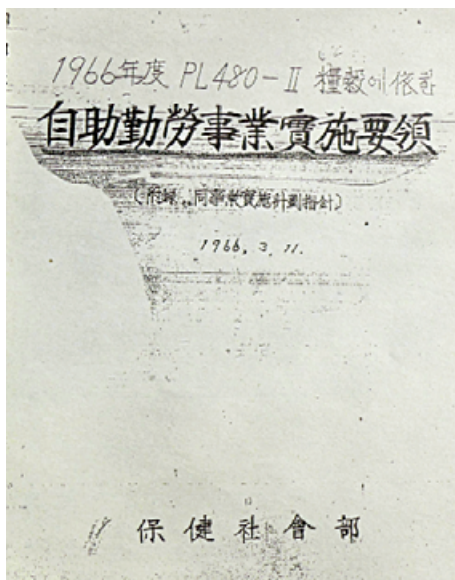 1966年度 PL480-II 糧穀에 依한
自助勤勞事業實施要領
(附録..同事業實施計劃指針)
1966. 3. 11.
保健社會部